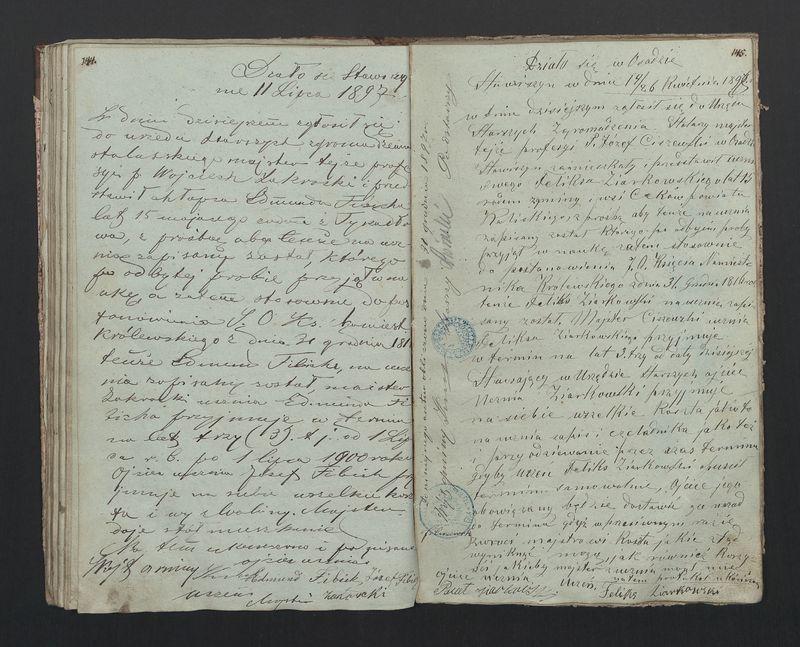 144.
Działo się Stawiszy
nie 11 Lipca 1897
W dniu dzisiejszem zgłosił się
do urzędu starszych zgromadzenia
stolarskiego majster tejże profe
syi p. Wojciech Zakrocki i przed
stawił chłopca Edmunda Fibicha
lat 15 mającego rodem z Tyrardo
wa, z prośbą aby tenże na ucz
nia zapisany został którego
po odbytej probie przyjął na
ukę a zatem stosownie do pos
tanowienia J. O. Ks. Namiest
Królewskiego z dnia 31 grudnia 181
tenże Edmund Fibich, na ucz
nia zapisany został, majster
Zakrocki ucznia Edmunda Fi
bicha przyjmuje w termin
na lat trzy (3). t j. od 1 Lip
ca r. b. po 1 lipca 1900 roku
Ojciec ucznia Józef Fibich prz
yjmuje na siebie wszelkie kosz
ta i Majster
daje stół mieszkanie
Na tem ukończono i podpisano
ojciec ucznia
Edmund Fibich Józef Fibich
uczeń
Majster Zakrocki
145.
Działo się w Osadzie
Stawiszyn w dniu 14/26 Kwietnia 1897
w dniu dzisiejszym zgłosił się do Urzędu
Starszych Zgromadzenia Stolarzy majster
tejże profesyi P. Józef Ciszewski w Osadzie
Stawiszyn zamieszkały i przedstawił ucznia
Feliksa Ziarkowskiego lat 15
rodem z gminy i wsi Ceków powiatu
Kaliskiego z prośbą aby tenże na ucznia
zapisany został którego po odbyciu proby
przyjął w naukę zatem stosownie
do postanowienia J. O. Księcia Namiest
nika Królewskiego z dnia 31 Grudnia 1816 roku
tenże Feliks Ziarkowski na ucznia zapi
sany został, Majster Ciszewski ucznia
Feliksa Ziarkowskiego przyjmuje
w termin na lat 3. trzy od daty dzisiejszej
Stawający w Urzędzie Starszych ojciec
Ucznia Ziarkowski przyjmuje
na siebie wszelkie koszta jako to
na ucznia zapis i czeladnika jako też
i przyodziewanie przez czas terminu
Gdyby Uczeń Feliks Ziarkowski opuścił
terminu samowolnie, Ojciec jego
obowiązany będzie dostawić go nazad
do terminu gdyż w przeciwnym razie
zwroci majstrowi koszta jakie z tego
wyniknąć mogą, jak również korzy
ści jakieby majster z ucznia mógł mieć
zatem protokół ukończony
ojciec ucznia
Uczeń Feliks Ziarkowski